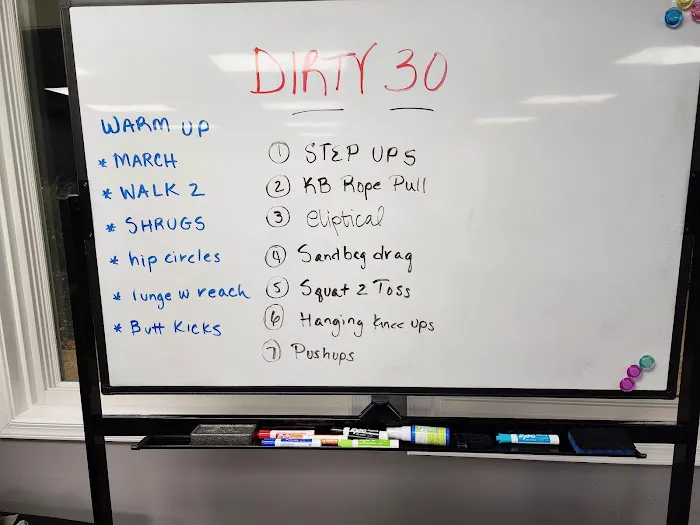 DIRTY 30
WARM UP
* MARCH
* WALK 2
* SHRUGS
* hip circles
* lunge w reach
* Butt Kicks
① STEP UPS
② KB Rope Pull
③ eliptical
④ Sandbag drag
⑤ Squat 2 Toss
⑥ Hanging Knee ups
⑦ Pushups
EXPO
EXPO